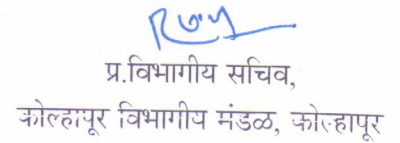 प्र.विभागीय सचिव,
कोल्हापूर विभागीय मंडळ, कोल्हापूर